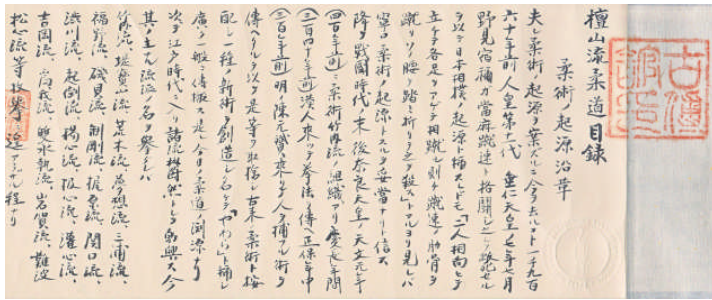 檀山流柔道目録
柔術ノ起源沿革
夫レ柔術ノ起源ヲ案ズルニ今ヲ去ルコト一千九百
六十年前人皇第十一代垂仁天皇ノ七年七月
野見宿禰ガ當麻蹴速ト格闘シ之ヲ蹴死セル
ヲ以テ日本相撲ノ起源ト稱スレドモ「二人相向ヒテ
立チ各足ヲアゲテ相蹴ル則チ蹴速ノ肋骨ヲ
蹴リ又腰ヲ踏ミ折リテ之ヲ殺ス」トアルヨリ見レバ
寧ロ柔術ノ起源トスルヲ妥當ナリト信ズ
降テ戰國時代ノ末後奈良天皇ノ天文元年
(四百年前)ニ柔術竹内流ノ組織アリ慶長年間
(三百四十年前)漢人來ツテ拳法ヲ傳ヘ正保年中
(三百年前)明ノ陳元贇ノ來タルアリ人ヲ捕フル術ヲ
傳ヘタルヲ以テ是等ヲ取捨シ古來ノ柔術ト按
配シ一種ノ新術ヲ創造シ名ヅケテ「やわら」ト稱シ
廣ク一般ニ傳授ス是レ今日ノ柔道ノ淵源ナリ
江戸時代ニ入リ諸流派鬱然トシテ勃興ス今
其ノ主ナル流派ノ名ヲ擧グレバ
竹内流、堤寶山流、荒木流、夢想流、三浦流、
福野流、磯貝流、制剛流、梶原流、関口流、
澁川流、起倒流、楊心流、扱心流、灌心流、
吉岡流、為我流、岩賀流、難波
松心流等枚擧ニ遑アラザル程ナリ